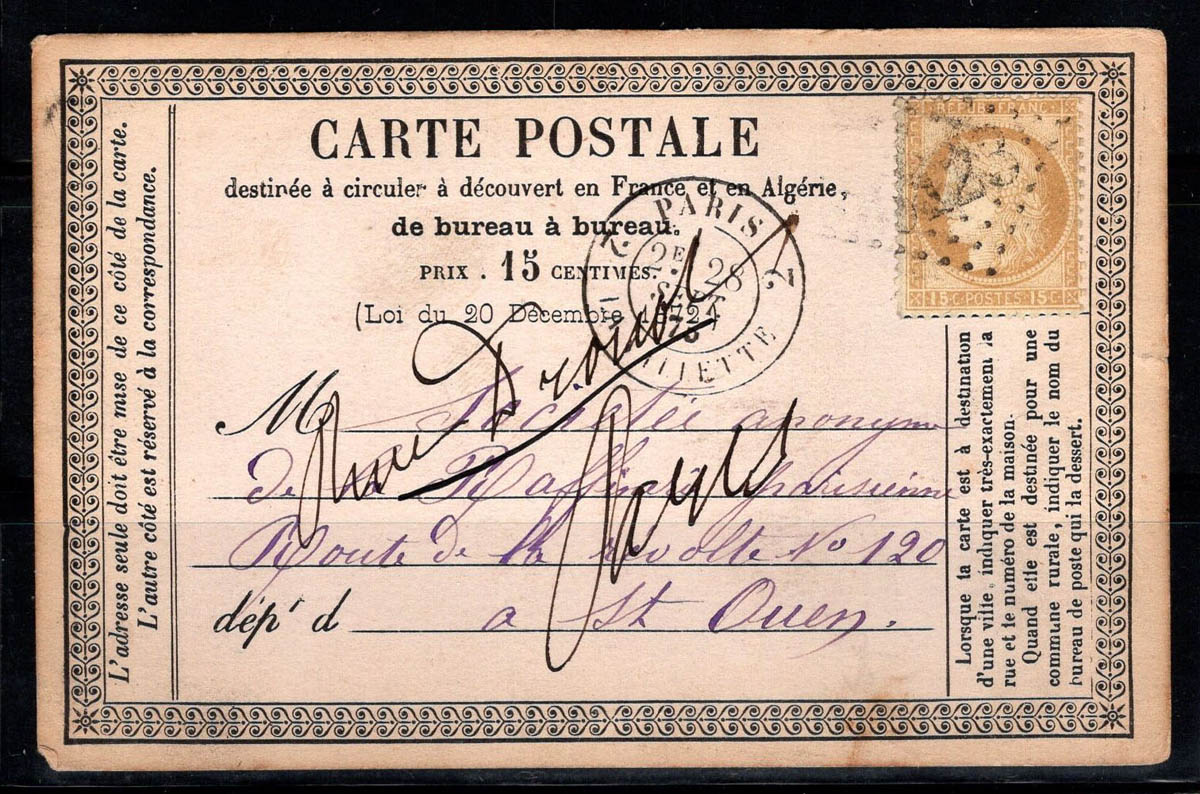 CARTE POSTALE
destinée à circuler à découvert en France et en Algérie,
de bureau à bureau.
PRIX . 15 CENTIMES.
(Loi du 20 Décembre 1872
REPUB. FRANC.
15 C. POSTES 15 C.
PARIS
2E
28
VILLETTE
L'adresse seule doit être mise de ce côté de la carte.
L'autre côté est réservé à la correspondance.
M Société anonyme
de la Raffinerie parisienne
Route de la révolte No 120
dép! d a St Ouen.
Rue
Lorsque la carte est à destination
d'une ville, indiquer très-exactement la
rue et le numéro de la maison.
Quand elle est destinée pour une
commune rurale, indiquer le nom du
bureau de poste qui la dessert.